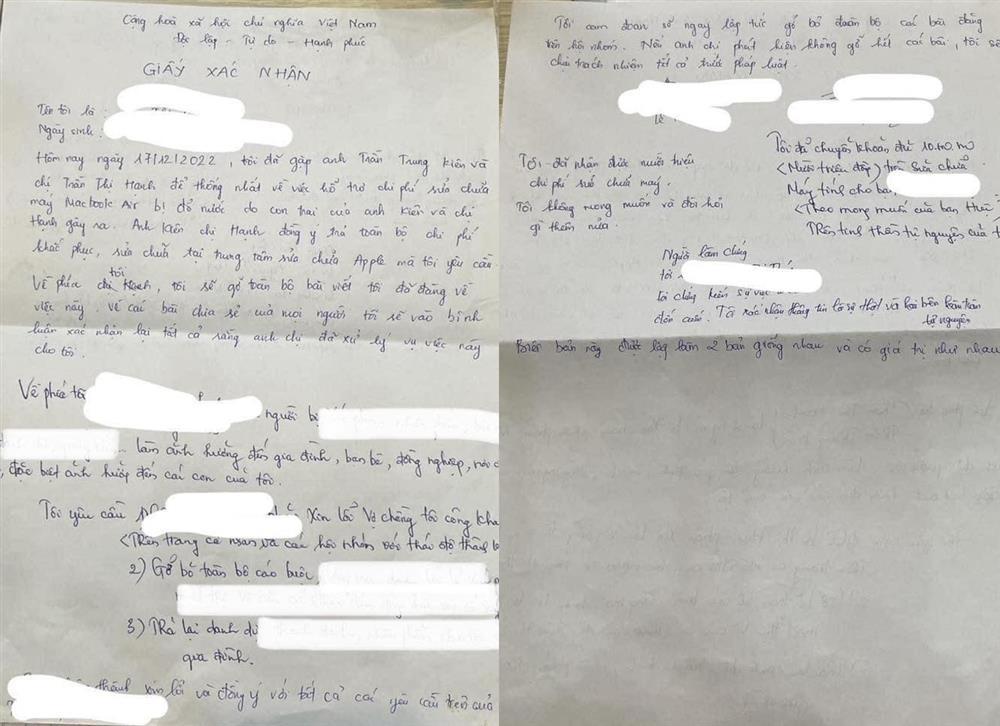 Cộng hoà xã hội chủ nghĩa Việt Nam
Độc lập - Tự do - Hạnh phúc
GIẤY XÁC NHẬN
Tên tôi là :
Ngày sinh :
Hôm nay ngày 17/12/2022, tôi đã gặp anh Trần Trung Kiên và
chị Trần Thị Hạnh để thống nhất về việc hỗ trợ chi phí sửa chữa
máy Macbook Air bị đổ nước do con trai của anh Kiên và chị
Hạnh gây ra. Anh Kiên chị Hạnh đồng ý trả toàn bộ chi phí
khắc phục, sửa chữa tại trung tâm sửa chữa Apple mà tôi yêu cầu.
Về phía tôi, tôi sẽ gỡ toàn bộ bài viết tôi đã đăng về
việc này. Về các bài chia sẻ của mọi người tôi sẽ vào bình
luận xác nhận lại tất cả rằng anh chị đã xử lý vụ việc này
cho tôi.
Về phía tôi
người bị
làm ảnh hưởng đến gia đình, bạn bè, đồng nghiệp,
đặc biệt ảnh hưởng đến các con của tôi.
Tôi yêu cầu
xin lỗi vợ chồng tôi công kha
<Trên trang cá nhân và các hội nhóm với thái độ thành
2) Gỡ bỏ toàn bộ cáo buộc
3) Trả lại danh dự
gia đình.
thành xin lỗi và đồng ý với tất cả các yêu cầu trên của
Tôi cam đoan sẽ ngay lập tức gỡ bỏ toàn bộ các bài đăng
trên hội nhóm. Nếu anh chị phát hiện không gỡ hết các bài, tôi sẽ
chịu trách nhiệm tất cả trước pháp luật.
Tôi đã nhận được mười triệu
chi phí sửa chữa máy.
Tôi không mong muốn và đòi hỏi
gì thêm nữa.
Tôi đã chuyển khoản đủ
<Mười triệu đồng> sửa chữa
Máy tính cho bạn
<Theo mong muốn của bạn
Trên tinh thần tự nguyện của t
Người làm chứng
tôi
tôi chứng kiến sự việc
đến cuối. Tôi xác nhận thông tin là sự thật và hai bên hoàn toàn
tự nguyện
Biên bản này được lập làm 2 bản giống nhau và có giá trị như nhau